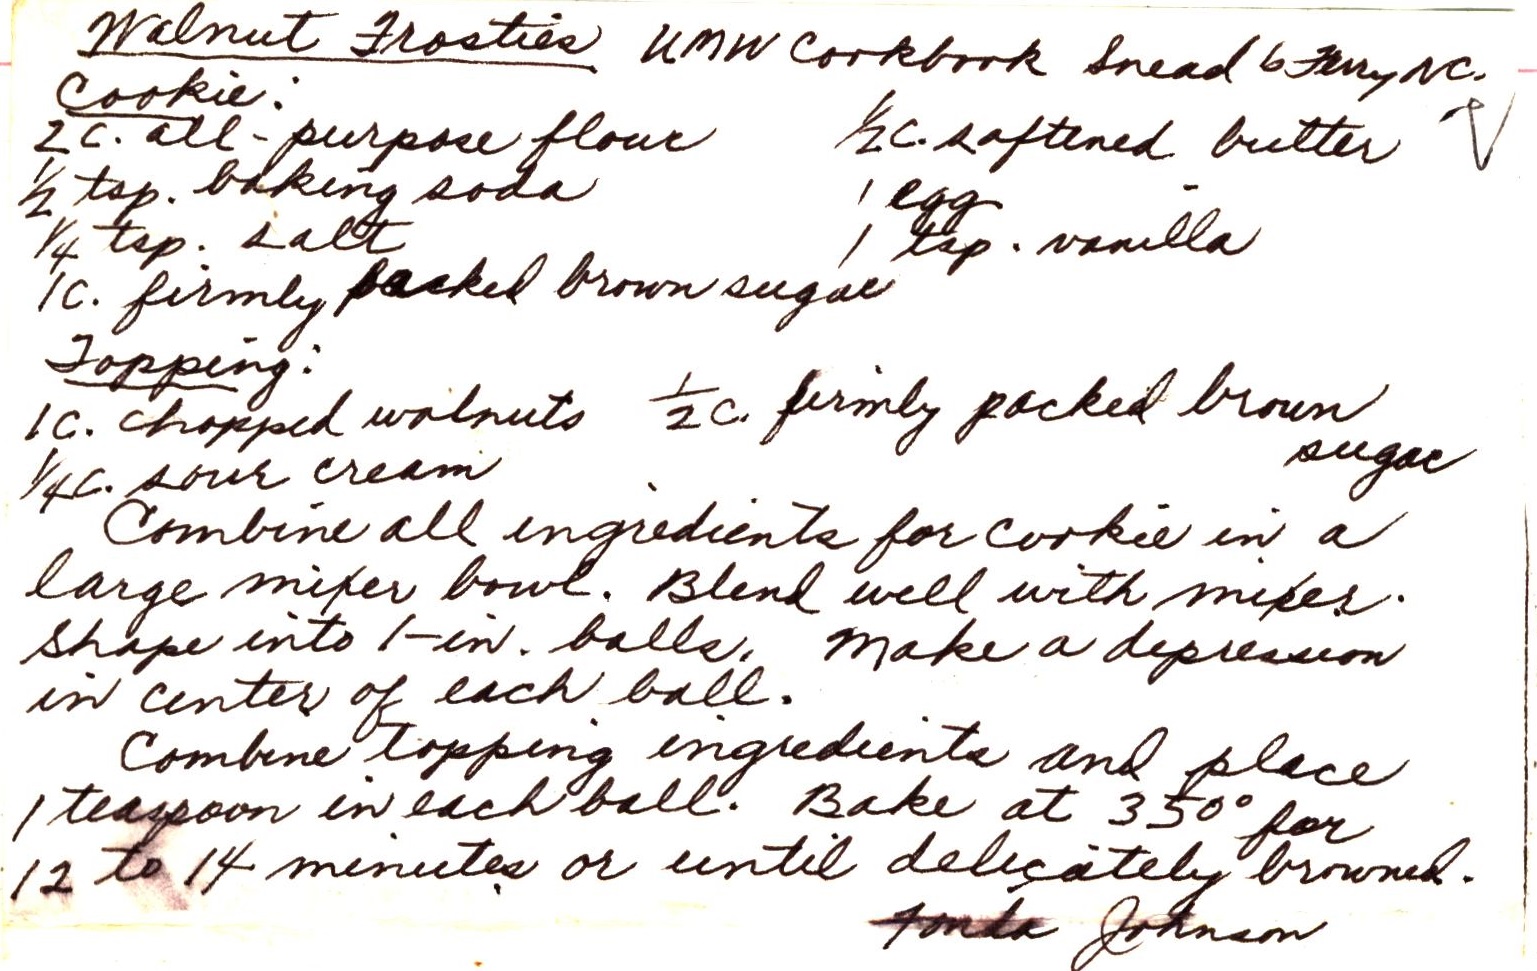 Walnut Frosties UMW Cookbook Snead's Ferry NC.
Cookie:
2 C. all-purpose flour 1/2 C. softened butter
1/2 tsp. baking soda 1 egg
1/4 tsp. salt 1 tsp. vanilla
1 C. firmly packed brown sugar
Topping:
1 C. chopped walnuts 1/2 C. firmly packed brown
sugar
1/4 C. sour cream
Combine all ingredients for cookie in a
large mixer bowl. Blend well with mixer.
Shape into 1-in. balls. Make a depression
in center of each ball.
Combine topping ingredients and place
1 teaspoon in each ball. Bake at 350° for
12 to 14 minutes or until delicately browned.
Johnson